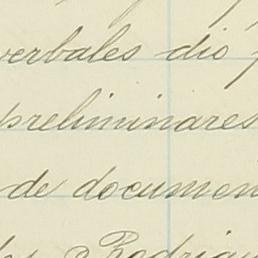 verbales dió
preliminares
de documen
Rodrigu